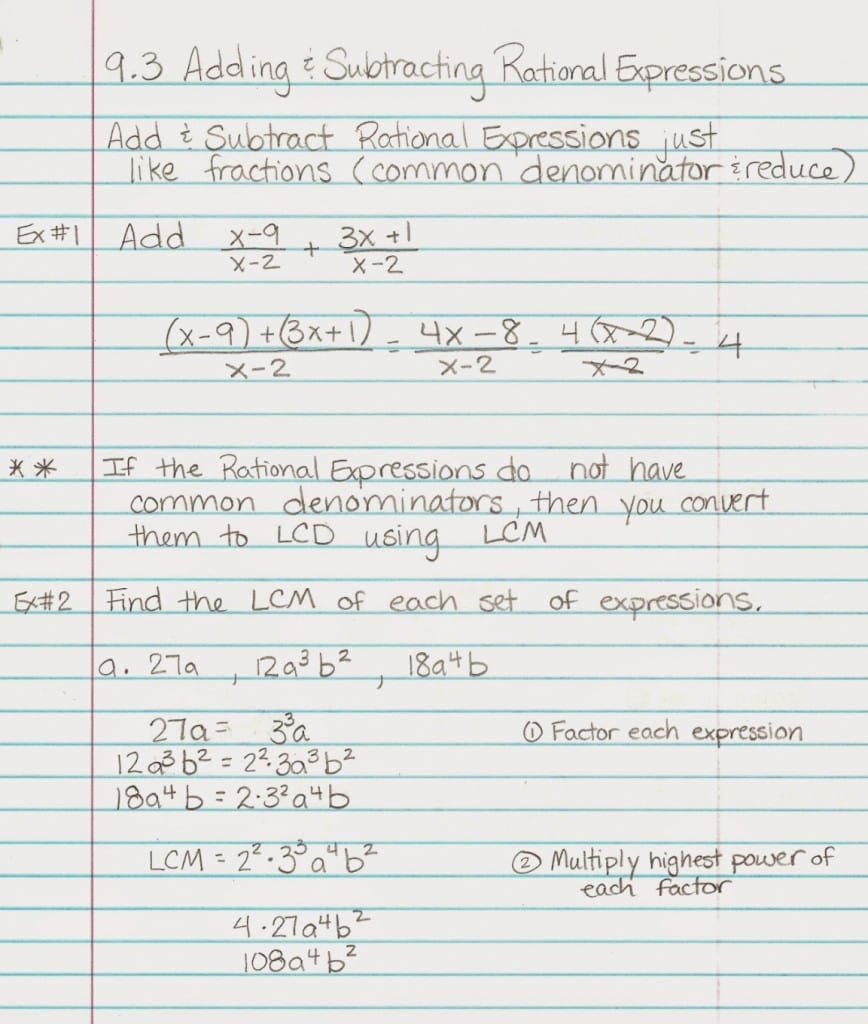 9.3 Adding & Subtracting Rational Expressions
Add & Subtract Rational Expressions just
like fractions (common denominator & reduce)
Ex #1 Add (x-9)/(x-2) + (3x+1)/(x-2)
((x-9)+(3x+1))/(x-2) = (4x-8)/(x-2) = 4(x-2)/(x-2) = 4
** If the Rational Expressions do not have
common denominators, then you convert
them to LCD using LCM
Ex#2 Find the LCM of each set of expressions.
a. 27a , 12a³b² , 18a⁴b
27a = 3³a ① Factor each expression
12a³b² = 2²·3a³b²
18a⁴b = 2·3²a⁴b
LCM = 2²·3³a⁴b² ② Multiply highest power of
each factor
4·27a⁴b²
108a⁴b²